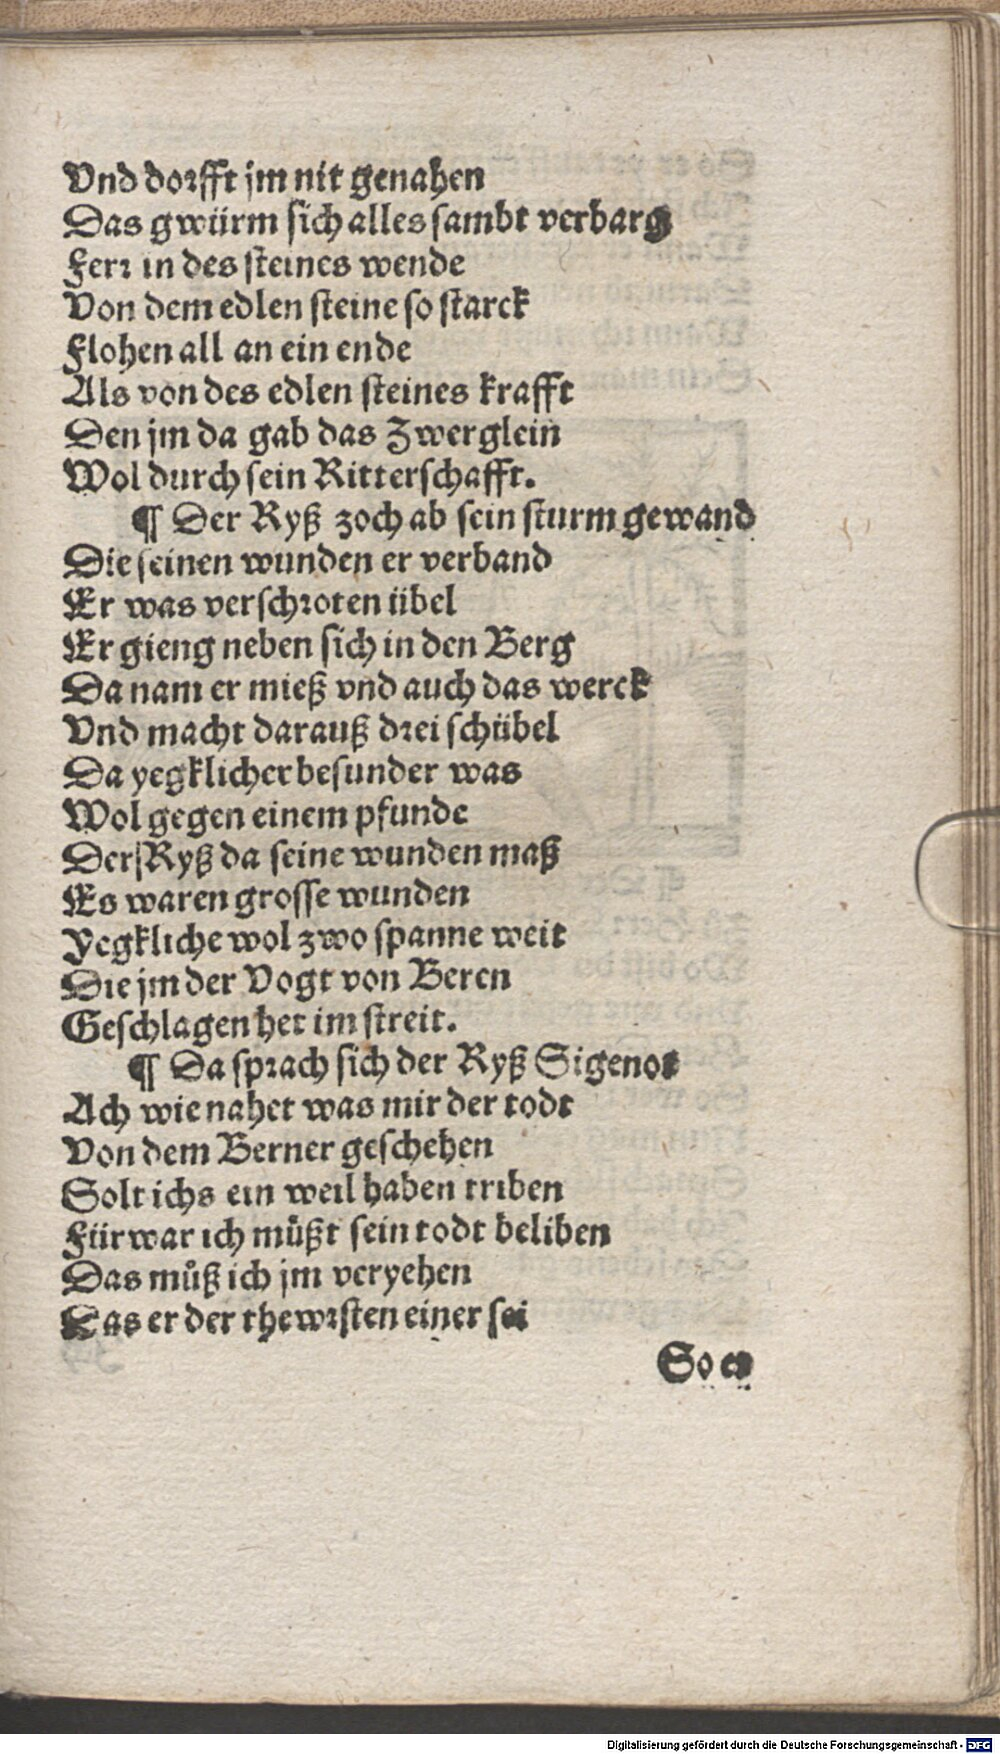 Vnd dorfft jm nit genahen
Das gwürm sich alles sambt verbarg
Ferr in des steines wende
Von dem edlen steine so starck
Flohen all an ein ende
Als von des edlen steines krafft
Den jm da gab das Zwerglein
Wol durch sein Ritterschafft.
¶ Der Ryß zoch ab sein sturm gewand
Die seinen wunden er verband
Er was verschroten übel
Er gieng neben sich in den Berg
Da nam er mieß vnd auch das werck
Vnd macht darauß drei schübel
Da yegklicher besunder was
Wol gegen einem pfunde
Der Ryß da seine wunden maß
Es waren grosse wunden
Yegkliche wol zwo spanne weit
Die jm der Vogt von Beren
Geschlagen het im streit.
¶ Da sprach sich der Ryß Sigenot
Ach wie nahet was mir der todt
Von dem Berner geschehen
Solt ichs ein weil haben triben
Fürwar ich müßt sein todt beliben
Das můß ich jm veryehen
Das er der thewrsten einer sei
So er
Digitalisierung gefördert durch die Deutsche Forschungsgemeinschaft - DFG